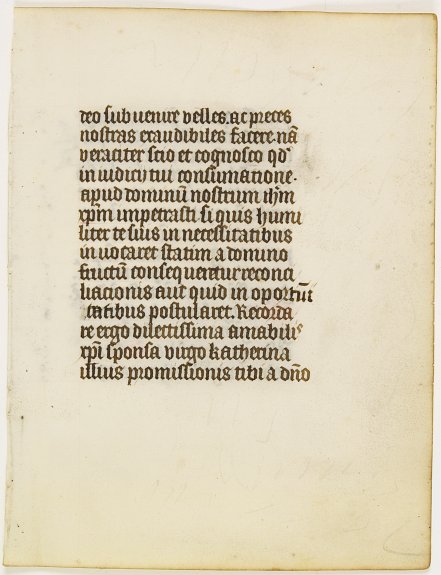 deo subuenire velles. ac preces
nostras exaudibiles facere. nā
veraciter scio et cognosco qd'
in iudicij tui consumatione.
apud dominū nostrum ihm̄
xpm̄ impetrasti si quis humi
liter te suis in necessitatibus
inuocaret statim a domino
fructū consequeretur reconci
liacionis aut quid in oportūi
tatibus postularet. Recorda
re ergo dilectissima amabilis
xpī sponsa virgo katherina
illius promissionis tibi a dn̄o